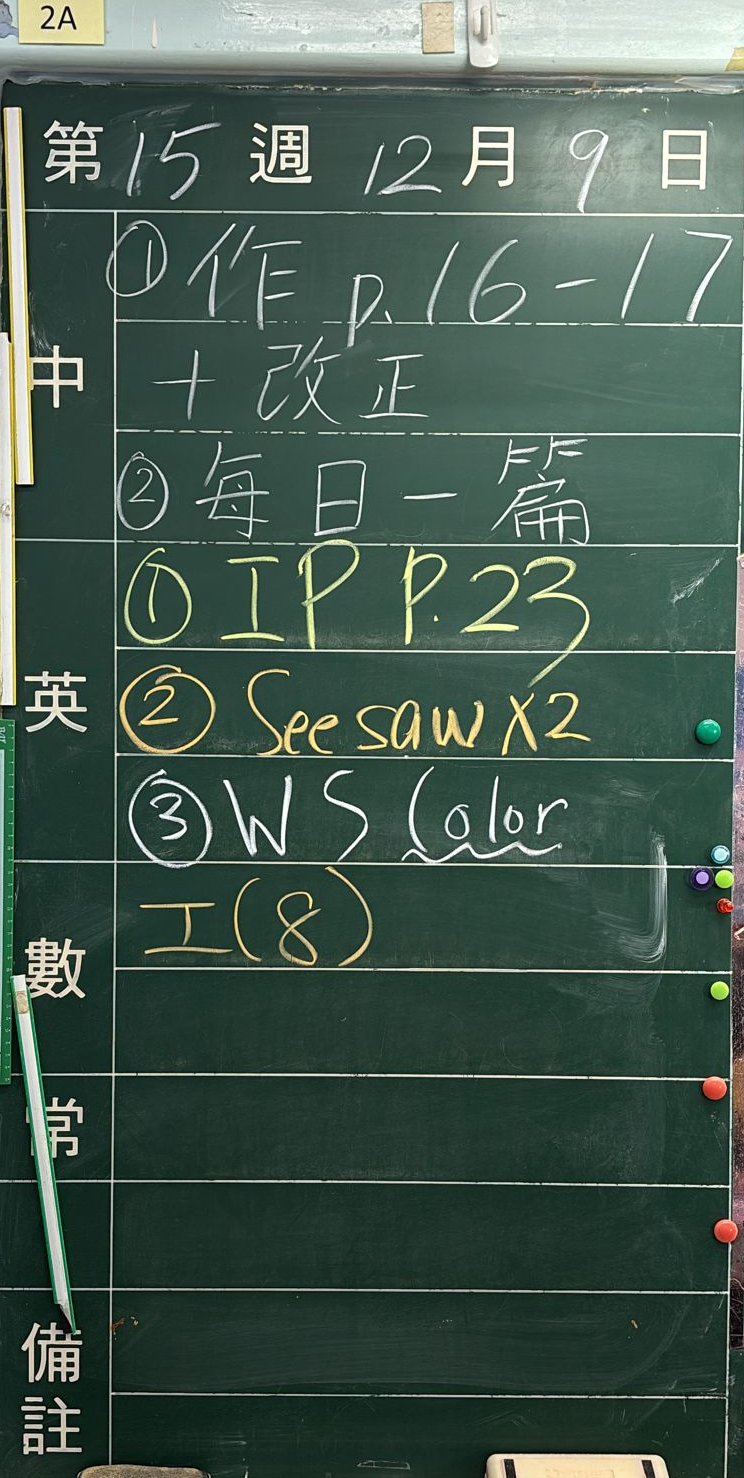 2A
第15週 12月9日
中
①作 p.16-17
+改正
②每日一篇
英
①IP P.23
②Seesaw x2
③WS Color
數
工(8)
常
備註